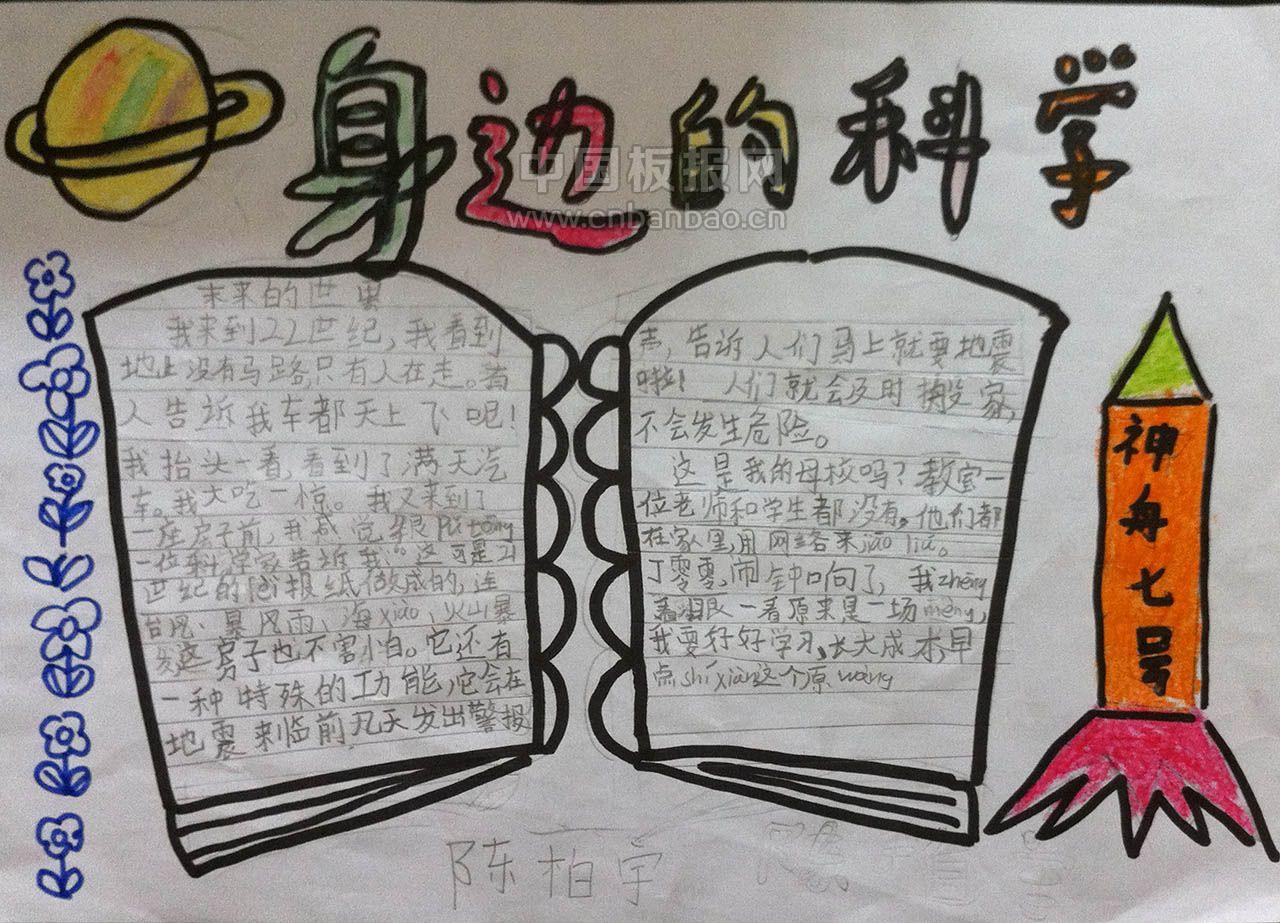 身边的科学
中国板报网
www.cnbanbao.cn
未来的世界
我来到22世纪,我看到
地上没有马路,只有人在走。有
人告诉我车都天上飞吧!
我抬头一看,看到了满天汽
车。我大吃一惊。我又来到了
一座房子前,我感觉很
一位科学家告诉我:“这可是21
世纪的旧报纸做成的,连
台风、暴风雨、海xiào、火山暴
发这房子也不害怕。它还有
一种特殊的功能,它会在
地震来临前几天发出警报
声,告诉人们马上就要地震
啦! 人们就会及时搬家,
不会发生危险。
这是我的母校吗?教室一
位老师和学生都没有。他们都
在家里,用网络来jiāo liú。
丁零零,闹钟响了,我zhēng
着眼一看原来是一场mèng,
我要好好学习,长大成才,早
点shí xiàn这个原wàng
神舟七号
陈柏宇